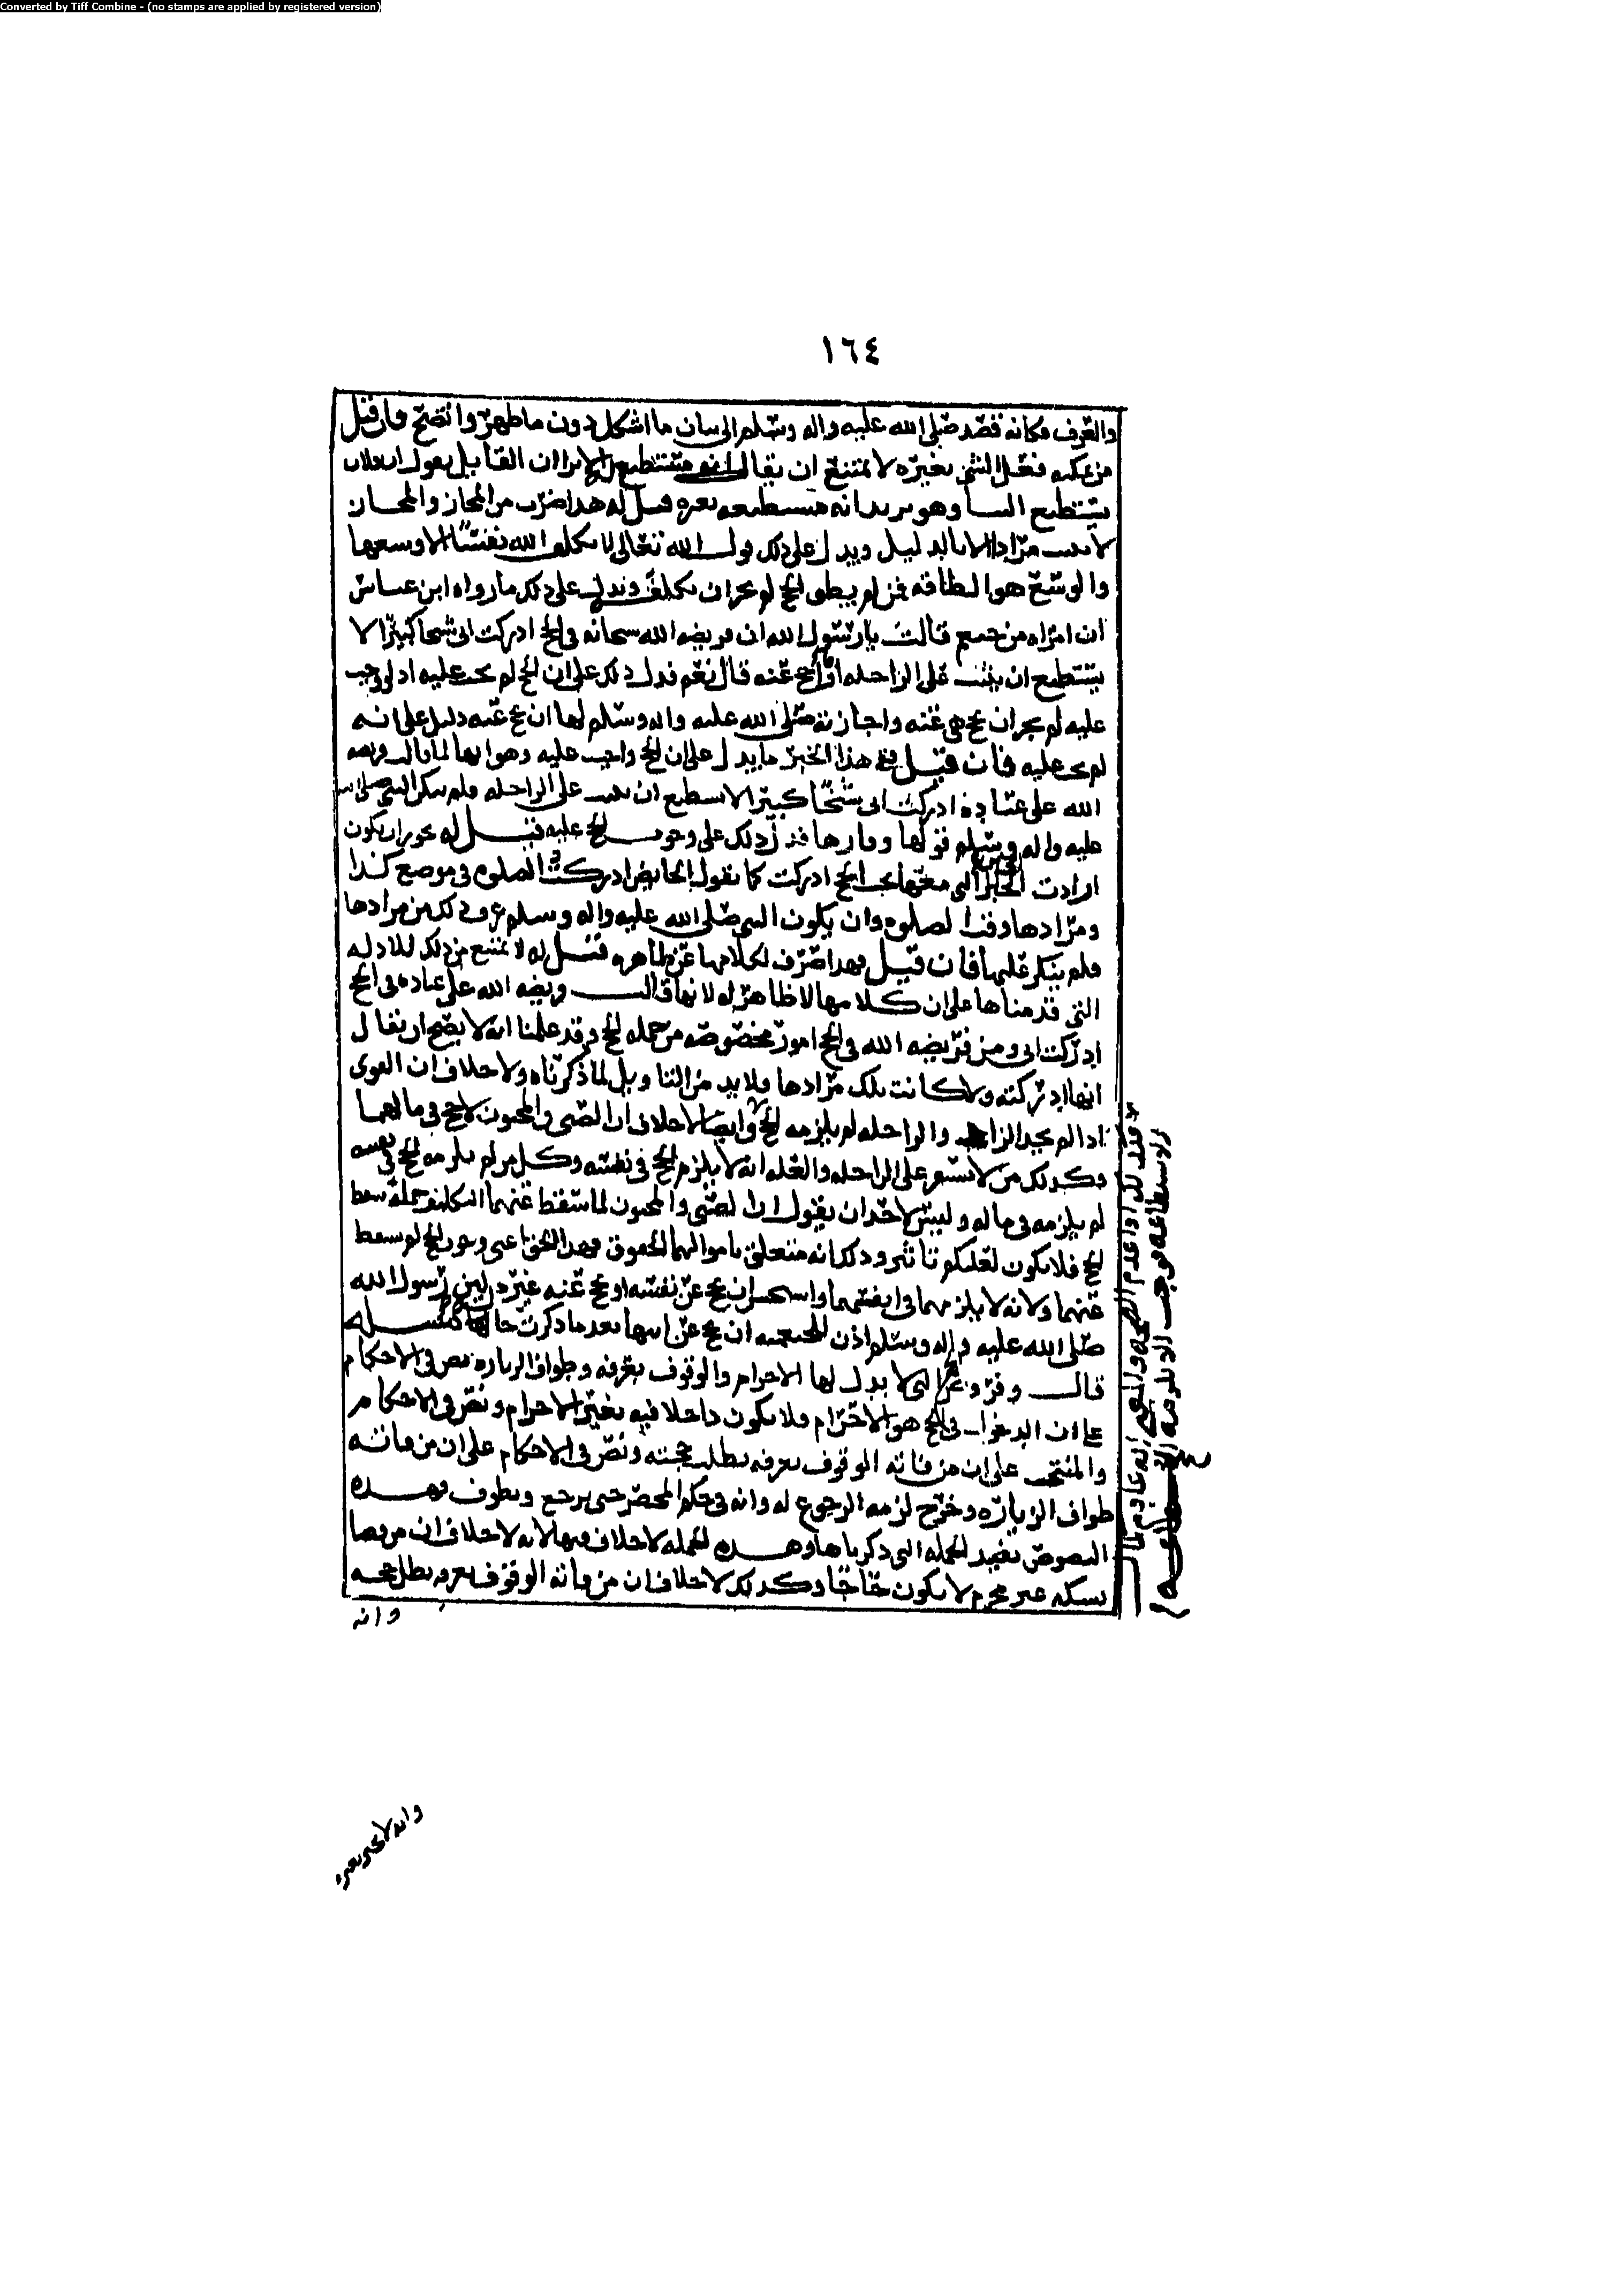 Converted by Tiff Combine - (no stamps are applied by registered version)
١٦٤
والعرف فكانه قصد صلى الله عليه واله وسلم الى بيان ما اشكل دون ما ظهر واتضح فان قيل
من يمكنه فعل الشي بغيره لا يمتنع ان يقال انه مستطيع له الا ترا ان القايل يقول ان فلان
يستطيع البنا وهو يريد انه مستطيعه بغيره قيل له هذا ضرب من المجاز والمجاز
لا يثبت مرادا الا بالدليل ويدل على ذلك قول الله تعالى لا يكلف الله نفسا الا وسعها
والوسع هو الطاقه فمن لم يطق الحج لم يجز ان يكلف ويدل على ذلك ما رواه ابن عباس
ان امراه من خثعم قالت يا رسول الله ان فريضه الله سبحانه في الحج ادركت ابي شيخا كبيرا لا
يستطيع ان يثبت على الراحله افاحج عنه قال نعم فدل ذلك على ان الحج لم يجب عليه اذ لو وجب
عليه لم يجز ان تحج هي عنه واجازته صلى الله عليه واله وسلم لها ان تحج عنه دليل على انه
لم يجب عليه فان قيل ففي هذا الخبر ما يدل على ان الحج واجب عليه وهو انها لما قالت فريضه
الله على عباده ادركت ابي شيخا كبيرا لا يستطيع ان يثبت على الراحله ولم ينكر النبي صلى الله
عليه واله وسلم قولها وقارها فدل ذلك على وجوب الحج عليه قيل له يجوز ان يكون
ارادت الحال التي معها يجب الحج ادركت كما نقول الحايض ادركت الصلوه في موضع كذا
ومرادها وقت الصلوه وان يكون النبي صلى الله عليه واله وسلم عرف ذلك من مرادها
ولم ينكر عليها فان قيل فهذا صرف لكلامها عن ظاهره قيل له لا يمتنع من ذلك للادله
التي قدمناها على ان كلامها لا ظاهر له لانها قالت فريضه الله على عباده في الحج
ادركت ابي ومن فريضه الله في الحج امور مخصوصه من جمله الحج وقد علمنا انه لا يصح ان يقال
انها ادركته ولا كانت تلك مرادها فلا بد من التاويل لما ذكرناه ولا خلاف ان القوي
اذا لم يجد الزاد والراحله لم يلزمه الحج وايضا لا خلاف ان الصبي والمجنون لا حج في مالهما
وكذلك من لا يستقر على الراحله والعله انه لا يلزم الحج في نفسه وكل من لم يلزمه الحج في نفسه
لم يلزمه في ماله وليس لاحد ان يقول ان الصبي والمجنون لما سقط عنهما التكليف جمله سقط
الحج فلا يكون لعلتكم تاثير وذلك انه متعلق باموالهما الحقوق فهذا الحق اعني وجوب الحج لم يسقط
عنهما ولانه لا يلزمهما في انفسهما ان يحج عن نفسه او يحج عنه غيره رسول الله
صلى الله عليه واله وسلم اذن للخثعميه ان تحج عن ابيها بعد ما ذكرت حاله مسئله
قال وفروض الحج التي لا بدل لها الاحرام والوقوف بعرفه وطواف الزياره نص في الاحكام
على ان الدخول في الحج هو بالاحرام ولا يكون داخلا فيه بغير الاحرام ونص في الاحكام
والمنتخب على ان من فاته الوقوف بعرفه بطلت حجته ونص في الاحكام على ان من فاته
طواف الزياره وخرج لزمه الرجوع له وانه في حكم المحصر حتى يرجع ويطوف وهذه
النصوص تفيد الجمله التي ذكرناها وهذه الجمله لا خلاف فيها لانه لا خلاف ان من قضا
نسكه غير محرم لا يكون حاجا وكذلك لا خلاف ان من فاته الوقوف بعرفه بطل حجه
وانه